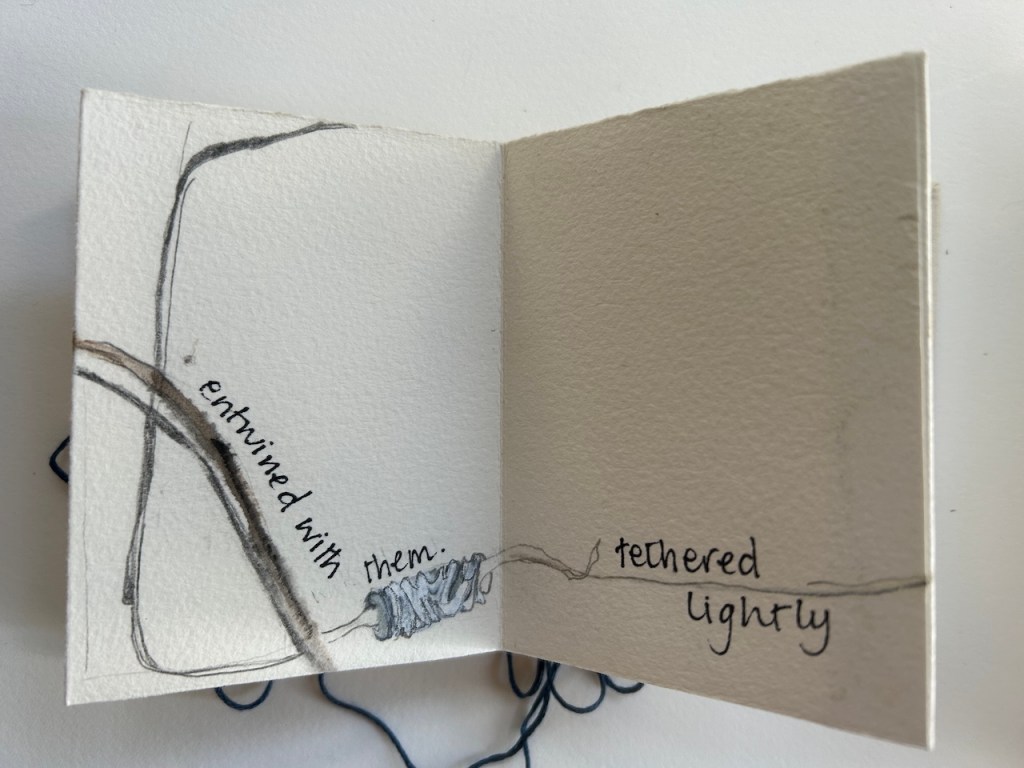 entwined with
them.
tethered
lightly